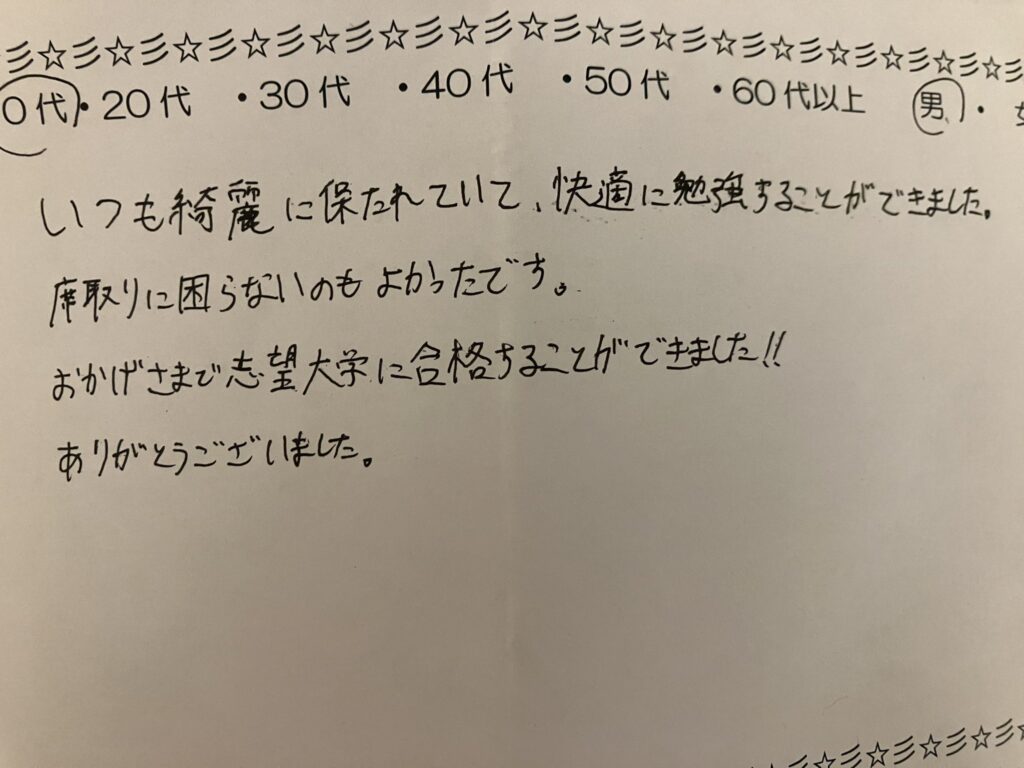 彡☆彡☆彡☆彡☆彡☆彡☆彡☆彡☆彡☆彡☆彡☆彡☆彡☆彡☆彡☆
0代・20代 ・30代 ・40代 ・50代 ・60代以上 男・
いつも綺麗に保たれていて、快適に勉強することができました。
席取りに困らないのもよかったです。
おかげさまで志望大学に合格することができました!!
ありがとうございました。
彡☆彡☆彡☆彡☆彡